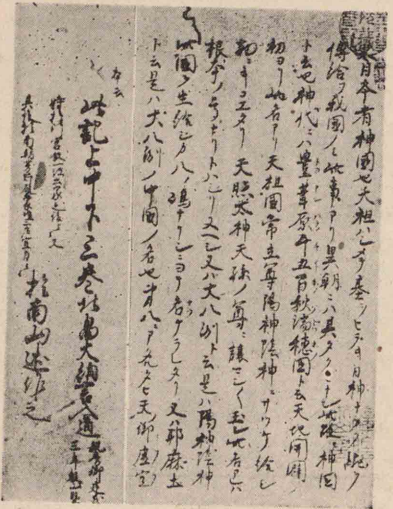 大日本者神國也天祖ハシメテ基ヲヒラキ日神ナカク統ヲ
傳給フ我國ノミ此事アリ異朝ニハ其タクヒナシ此故ニ神國
ト云也神代ニハ豊葦原千五百秋瑞穂國ト云天地開闢ノ
初ヨリ此名アリ天祖國常立尊陽神陰神ニサツケ給シ
勅ニキコエタリ天照太神天孫ノ尊ニ譲マシ〱シニモ此名アレハ
根本ノ号ナリトハシリヌヘシ又ハ大八洲ト云是ハ陽神陰神
此國ヲ生給シカ八ノ嶋ナリシニヨテ名ケラレタリ又耶麻土
ト云是ハ大八洲ノ中國ノ名也第八ニアタルタヒ天御虚空
本云
此記上中下三巻北畠大納言入道
於南山述作之